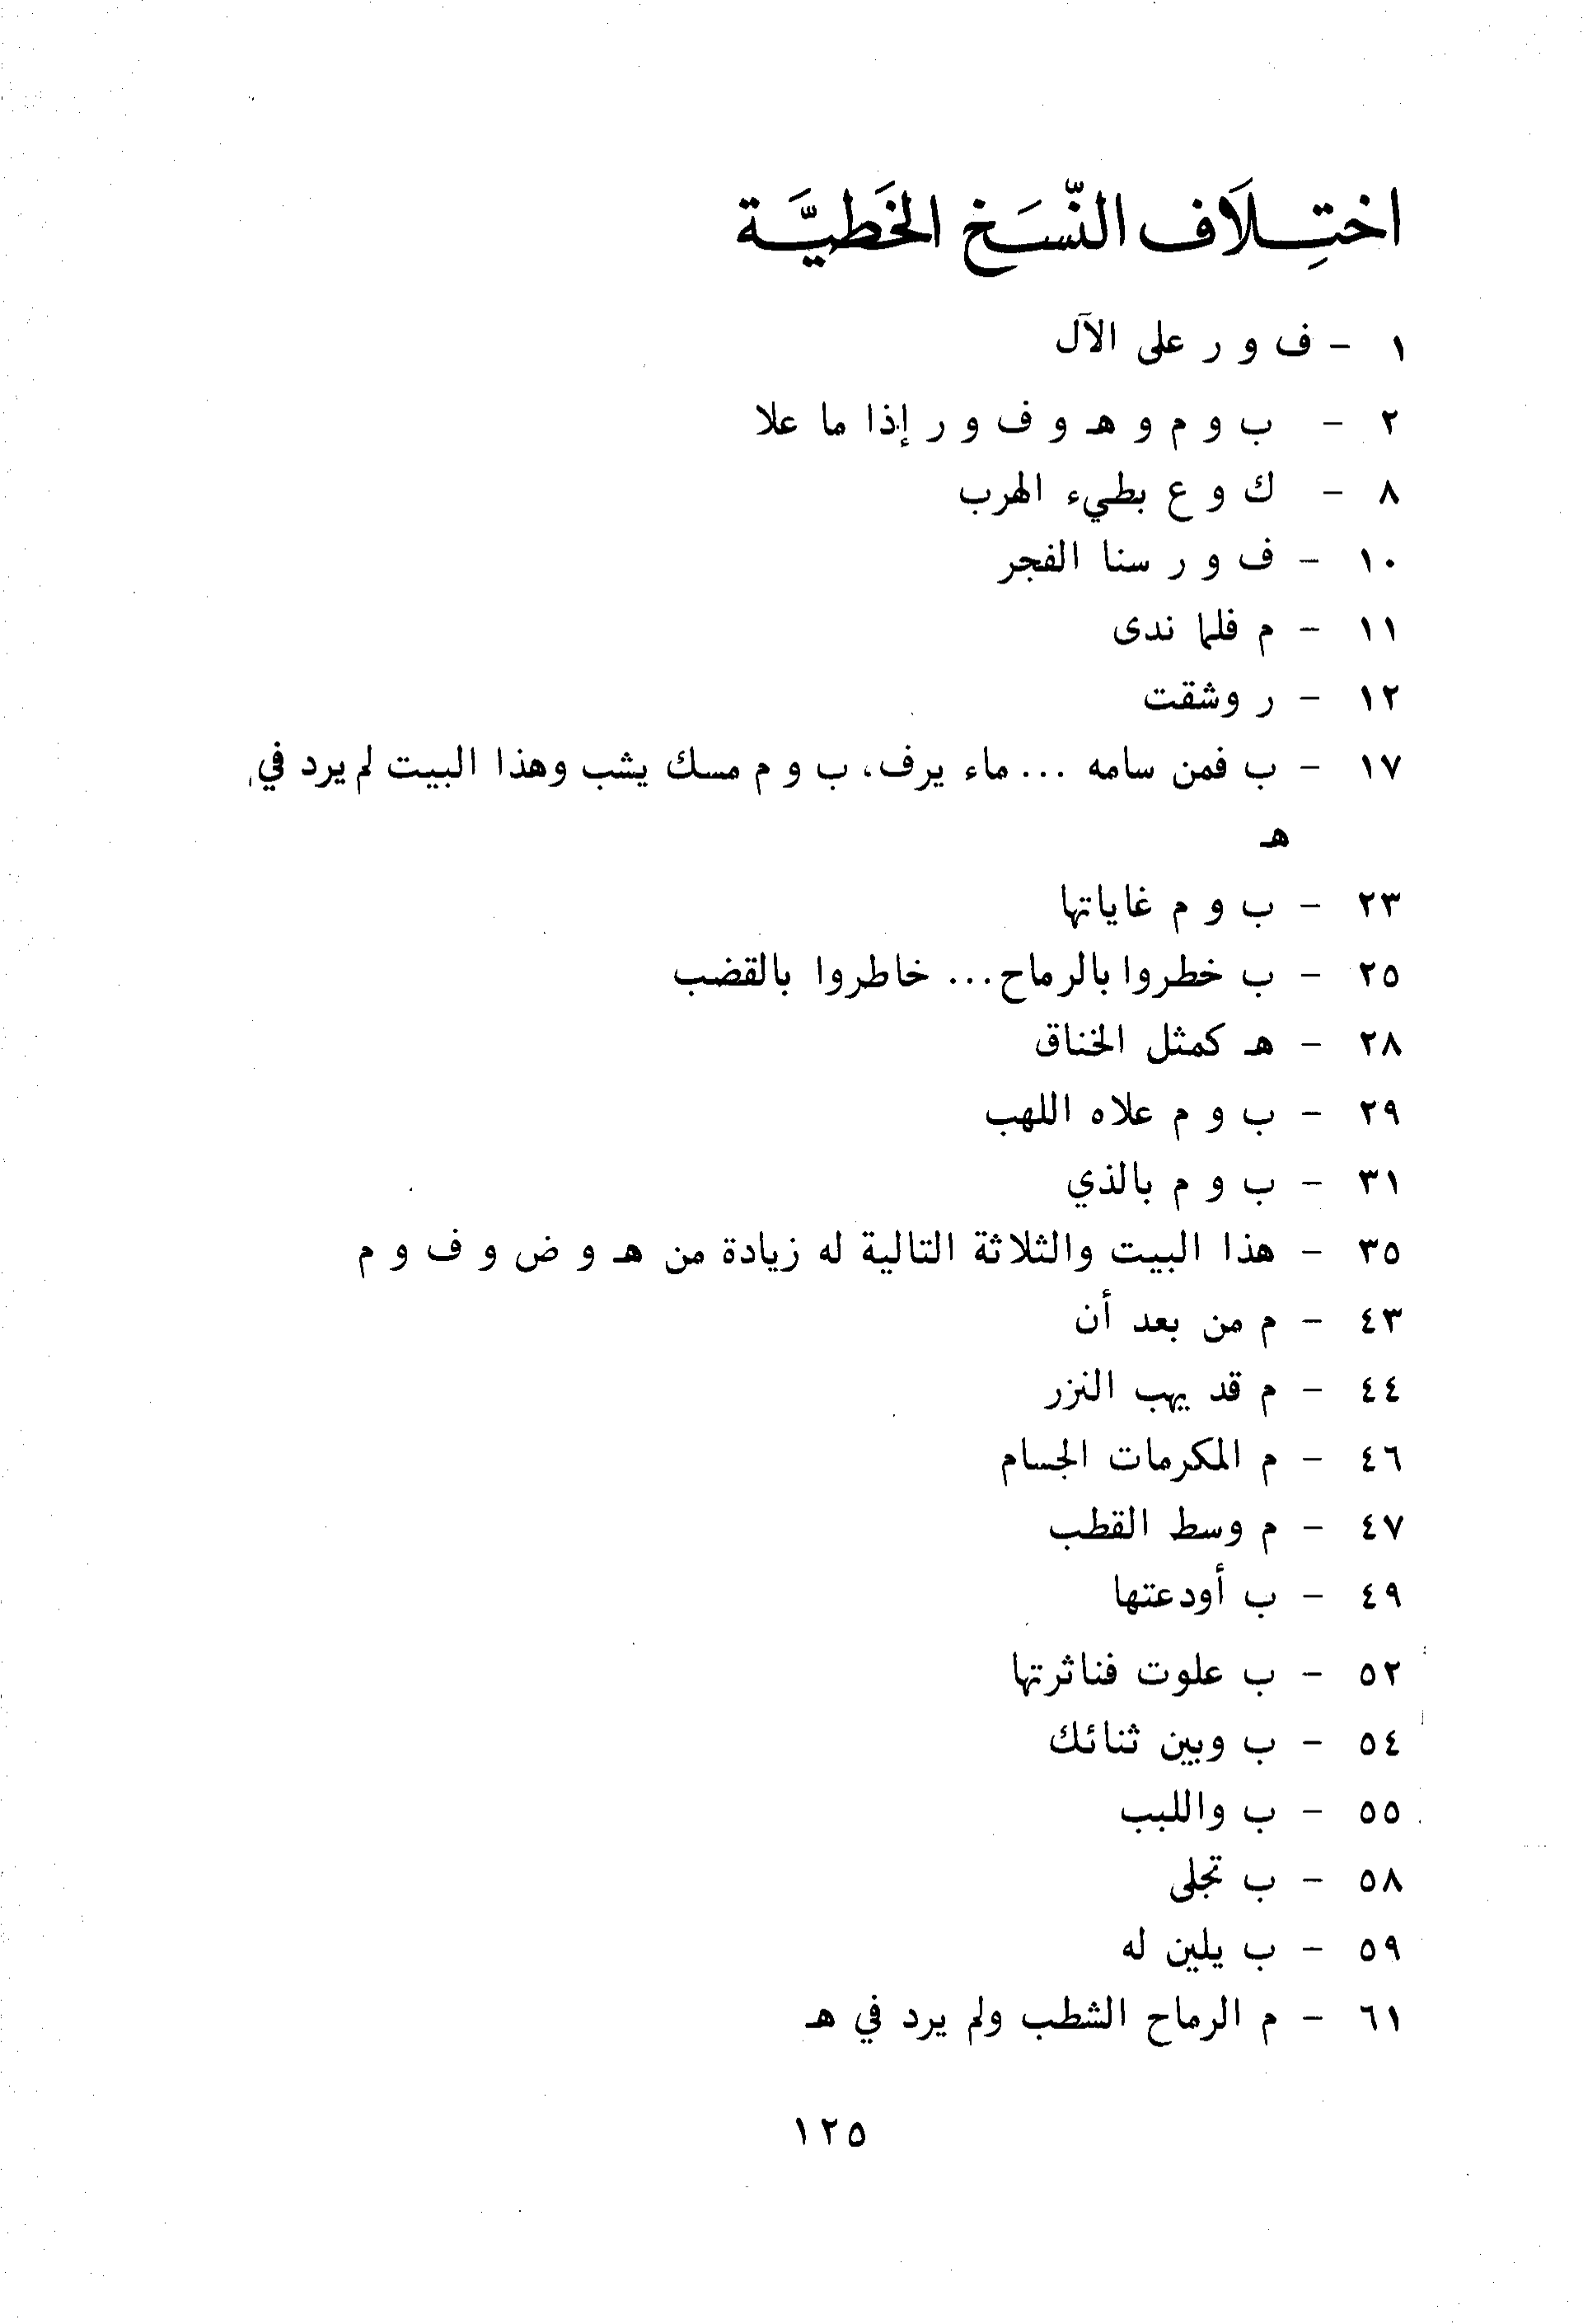 اختِلَاف النّسَخ الخَطيَّة
١ - ف و ر على الآل
٢ - ب و م و هـ و ف و ر إذا ما علا
٨ - ك و ع بطيء الهرب
١٠ - ف و ر سنا الفجر
١١ - م فلما ندى
١٢ - ر وشقت
١٧ - ب فمن سامه ... ماء يرف، ب و م مسك يشب وهذا البيت لم يرد في
هـ
٢٣ - ب و م غاياتها
٢٥ - ب خطروا بالرماح... خاطروا بالقضب
٢٨ - هـ كمثل الخناق
٢٩ - ب و م علاه اللهب
٣١ - ب و م بالذي
٣٥ - هذا البيت والثلاثة التالية له زيادة من هـ و ض و ف و م
٤٣ - م من بعد أن
٤٤ - م قد يهب النزر
٤٦ - م المكرمات الجسام
٤٧ - م وسط القطب
٤٩ - ب أودعتها
٥٢ - ب علوت فناثرتها
٥٤ - ب وبين ثنائك
٥٥ - ب واللبب
٥٨ - ب تجلى
٥٩ - ب يلين له
٦١ - م الرماح الشطب ولم يرد في هـ
١٢٥